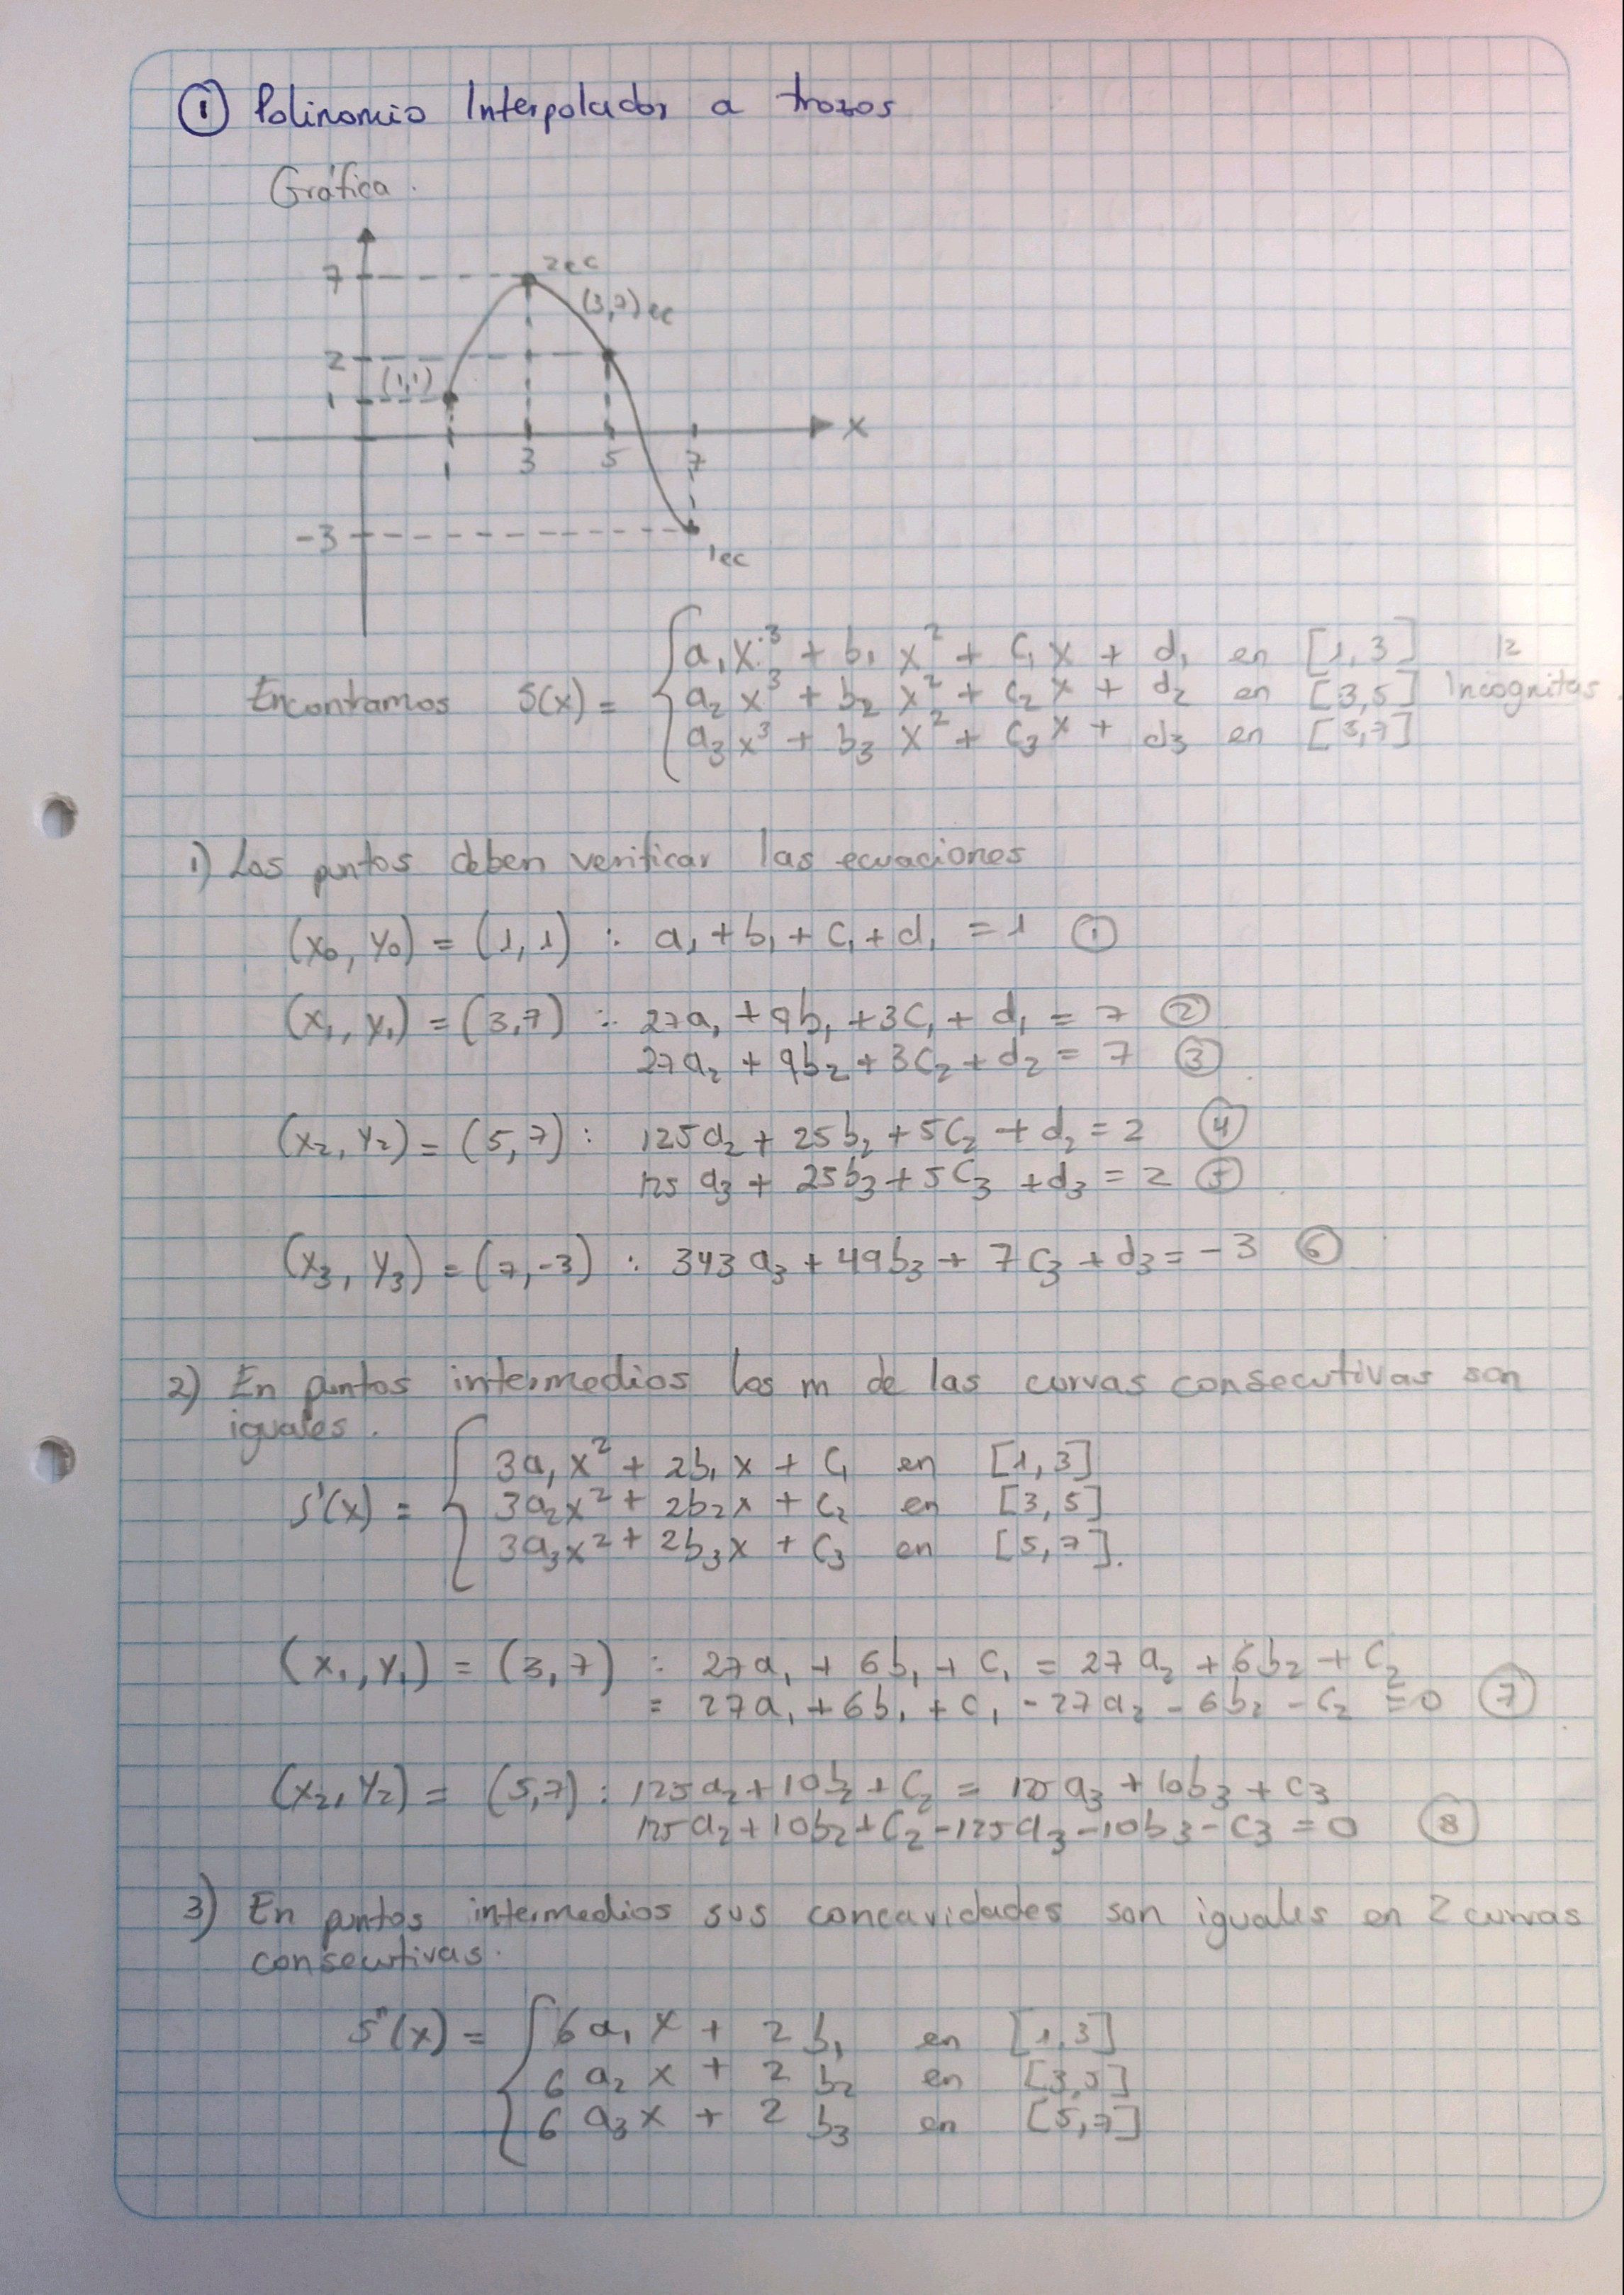 ① Polinomio Interpolador a trozos
Gráfica.
7
2ec
(3,7) ec
2
(1,1)
1
x
1 3 5 7
-3
1ec
a₁x³ + b₁x² + c₁x + d₁ en [1,3] 12
Encontramos S(x) = a₂x³ + b₂x² + c₂x + d₂ en [3,5] Incognitas
a₃x³ + b₃x² + c₃x + d₃ en [5,7]
1) Los puntos deben verificar las ecuaciones
(x₀, y₀) = (1,1) : a₁ + b₁ + c₁ + d₁ = 1 ①
(x₁, y₁) = (3,7) : 27a₁ + 9b₁ + 3c₁ + d₁ = 7 ②
27a₂ + 9b₂ + 3c₂ + d₂ = 7 ③
(x₂, y₂) = (5,7) : 125a₂ + 25b₂ + 5c₂ + d₂ = 2 ④
125a₃ + 25b₃ + 5c₃ + d₃ = 2 ⑤
(x₃, y₃) = (7,-3) : 343a₃ + 49b₃ + 7c₃ + d₃ = -3 ⑥
2) En puntos intermedios los m de las curvas consecutivas son
iguales.
3a₁x² + 2b₁x + c₁ en [1,3]
S'(x) = 3a₂x² + 2b₂x + c₂ en [3,5]
3a₃x² + 2b₃x + c₃ en [5,7].
(x₁, y₁) = (3,7) : 27a₁ + 6b₁ + c₁ = 27a₂ + 6b₂ + c₂
= 27a₁ + 6b₁ + c₁ - 27a₂ - 6b₂ - c₂ = 0 ⑦
(x₂, y₂) = (5,7) : 125a₂ + 10b₂ + c₂ = 125a₃ + 10b₃ + c₃
125a₂ + 10b₂ + c₂ - 125a₃ - 10b₃ - c₃ = 0 ⑧
3) En puntos intermedios sus concavidades son iguales en 2 curvas
consecutivas.
S"(x) = 6a₁x + 2b₁ en [1,3]
6a₂x + 2b₂ en [3,5]
6a₃x + 2b₃ en [5,7]